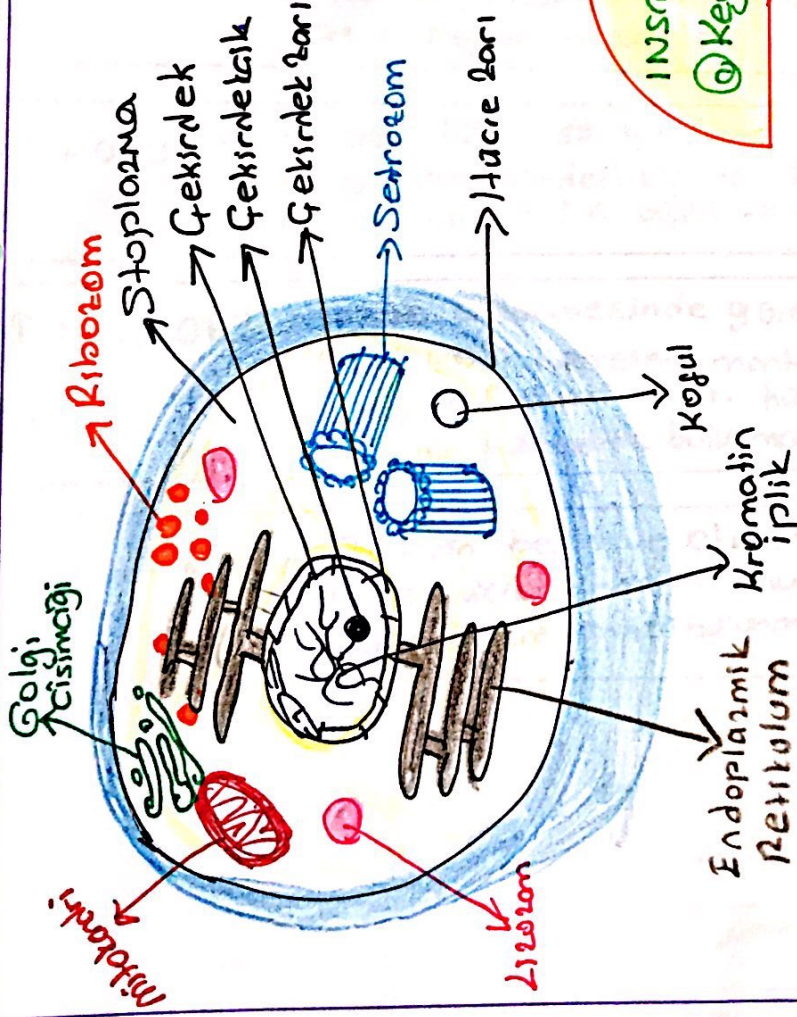 Golgi
cisimciği
Ribozom
Stoplazma
Çekirdek
Çekirdekcik
Çekirdek Zarı
Sentrozom
Hücre Zarı
Koful
Kromatin
iplik
Endoplazmik
Retikulum
Lizozom
mitokondri